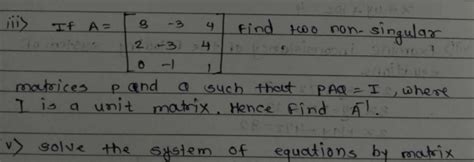 iii) If A = [ 3 -3 4 Find two non-singular
2 -3 4
0 -1 1 ]
matrices p and Q such that PAQ = I, where
I is a unit matrix. Hence find A⁻¹.
v) solve the system of equations by matrix